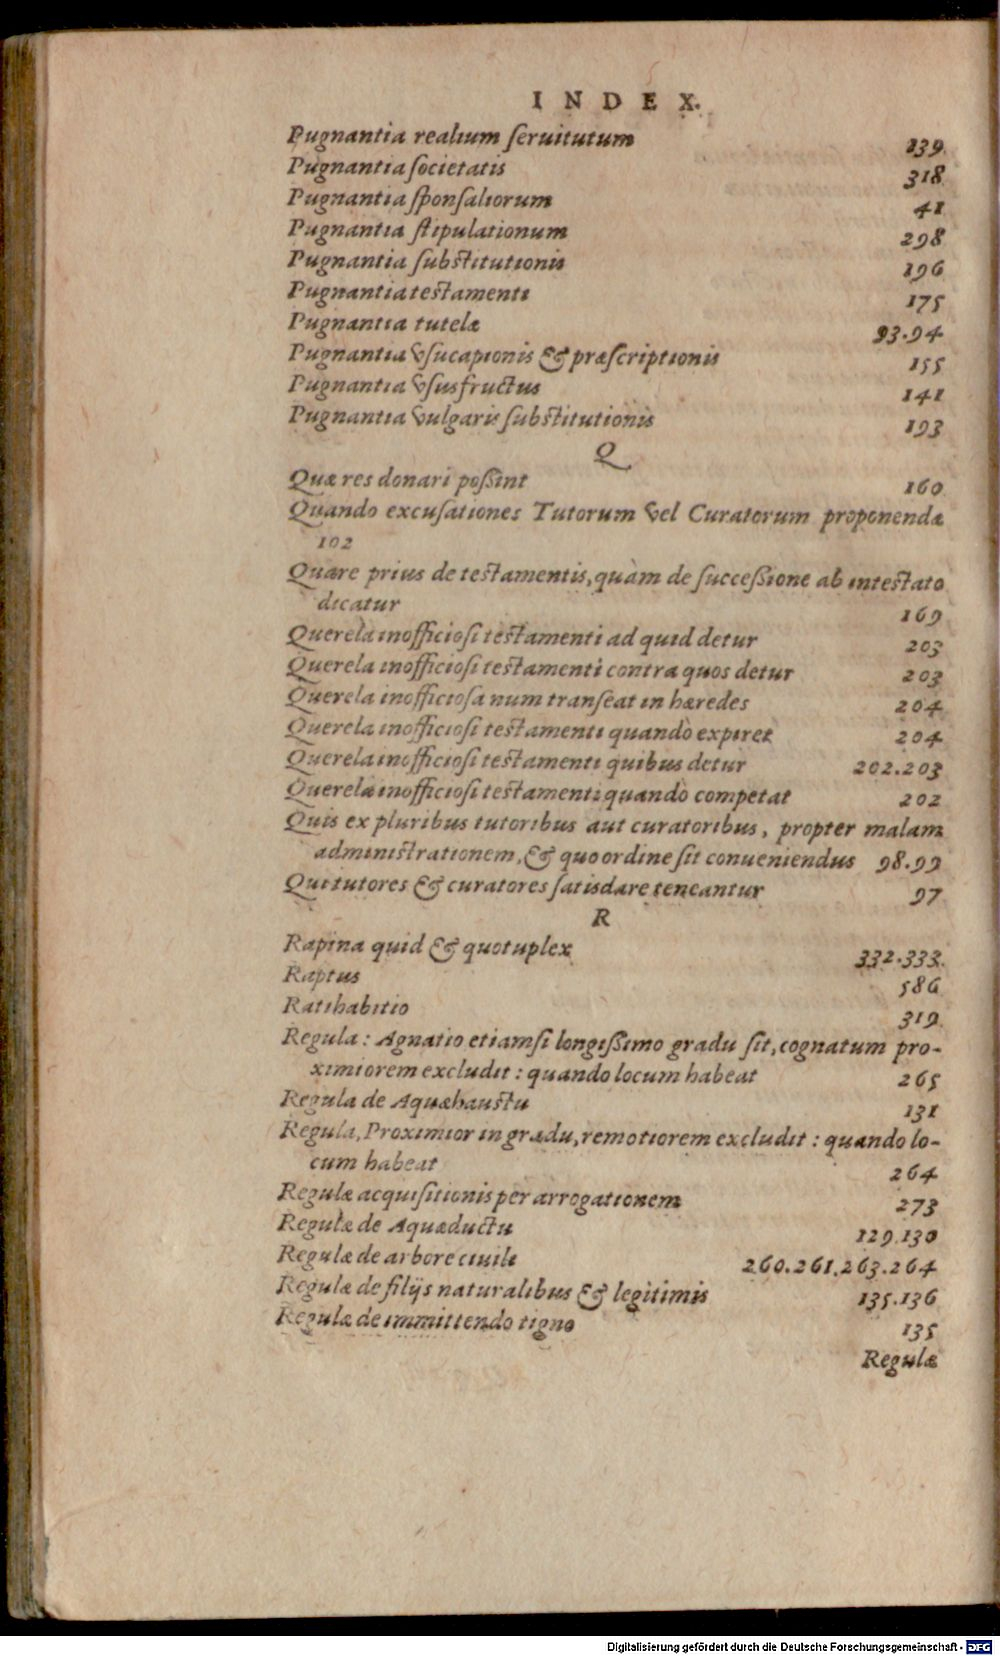 INDEX.
Pugnantia realium ſeruitutum 139
Pugnantia ſocietatis 318
Pugnantia ſponſaliorum 41
Pugnantia ſtipulationum 298
Pugnantia ſubſtitutionis 196
Pugnantia teſtamenti 175
Pugnantia tutelæ 93.94
Pugnantia vſucapionis & præſcriptionis 155
Pugnantia vſusfructus 141
Pugnantia vulgaris ſubſtitutionis 193
Q
Quæ res donari poßint 160
Quando excuſationes Tutorum vel Curatorum proponendæ
102
Quare prius de teſtamentis, quàm de ſucceßione ab inteſtato
dicatur 169
Querela inofficioſi teſtamenti ad quid detur 203
Querela inofficioſi teſtamenti contra quos detur 203
Querela inofficioſa num tranſeat in hæredes 204
Querela inofficioſi teſtamenti quando expiret 204
Querela inofficioſi teſtamenti quibus detur 202.203
Querela inofficioſi teſtamenti quando competat 202
Quis ex pluribus tutoribus aut curatoribus, propter malam
adminiſtrationem, & quo ordine ſit conueniendus 98.99
Qui tutores & curatores ſatisdare teneantur 97
R
Rapina quid & quotuplex 332.333.
Raptus 586
Ratihabitio 319
Regula: Agnatio etiamſi longißimo gradu ſit, cognatum pro-
ximiorem excludit: quando locum habeat 265
Regula de Aquæhauſtu 131
Regula, Proximior in gradu, remotiorem excludit: quando lo-
cum habeat 264
Regulæ acquiſitionis per arrogationem 273
Regulæ de Aquæductu 129.130
Regulæ de arbore ciuili 260.261.263.264
Regulæ de filijs naturalibus & legitimis 135.136
Regulæ de immittendo tigno 135
Regulæ
Digitalisierung gefördert durch die Deutsche Forschungsgemeinschaft - DFG